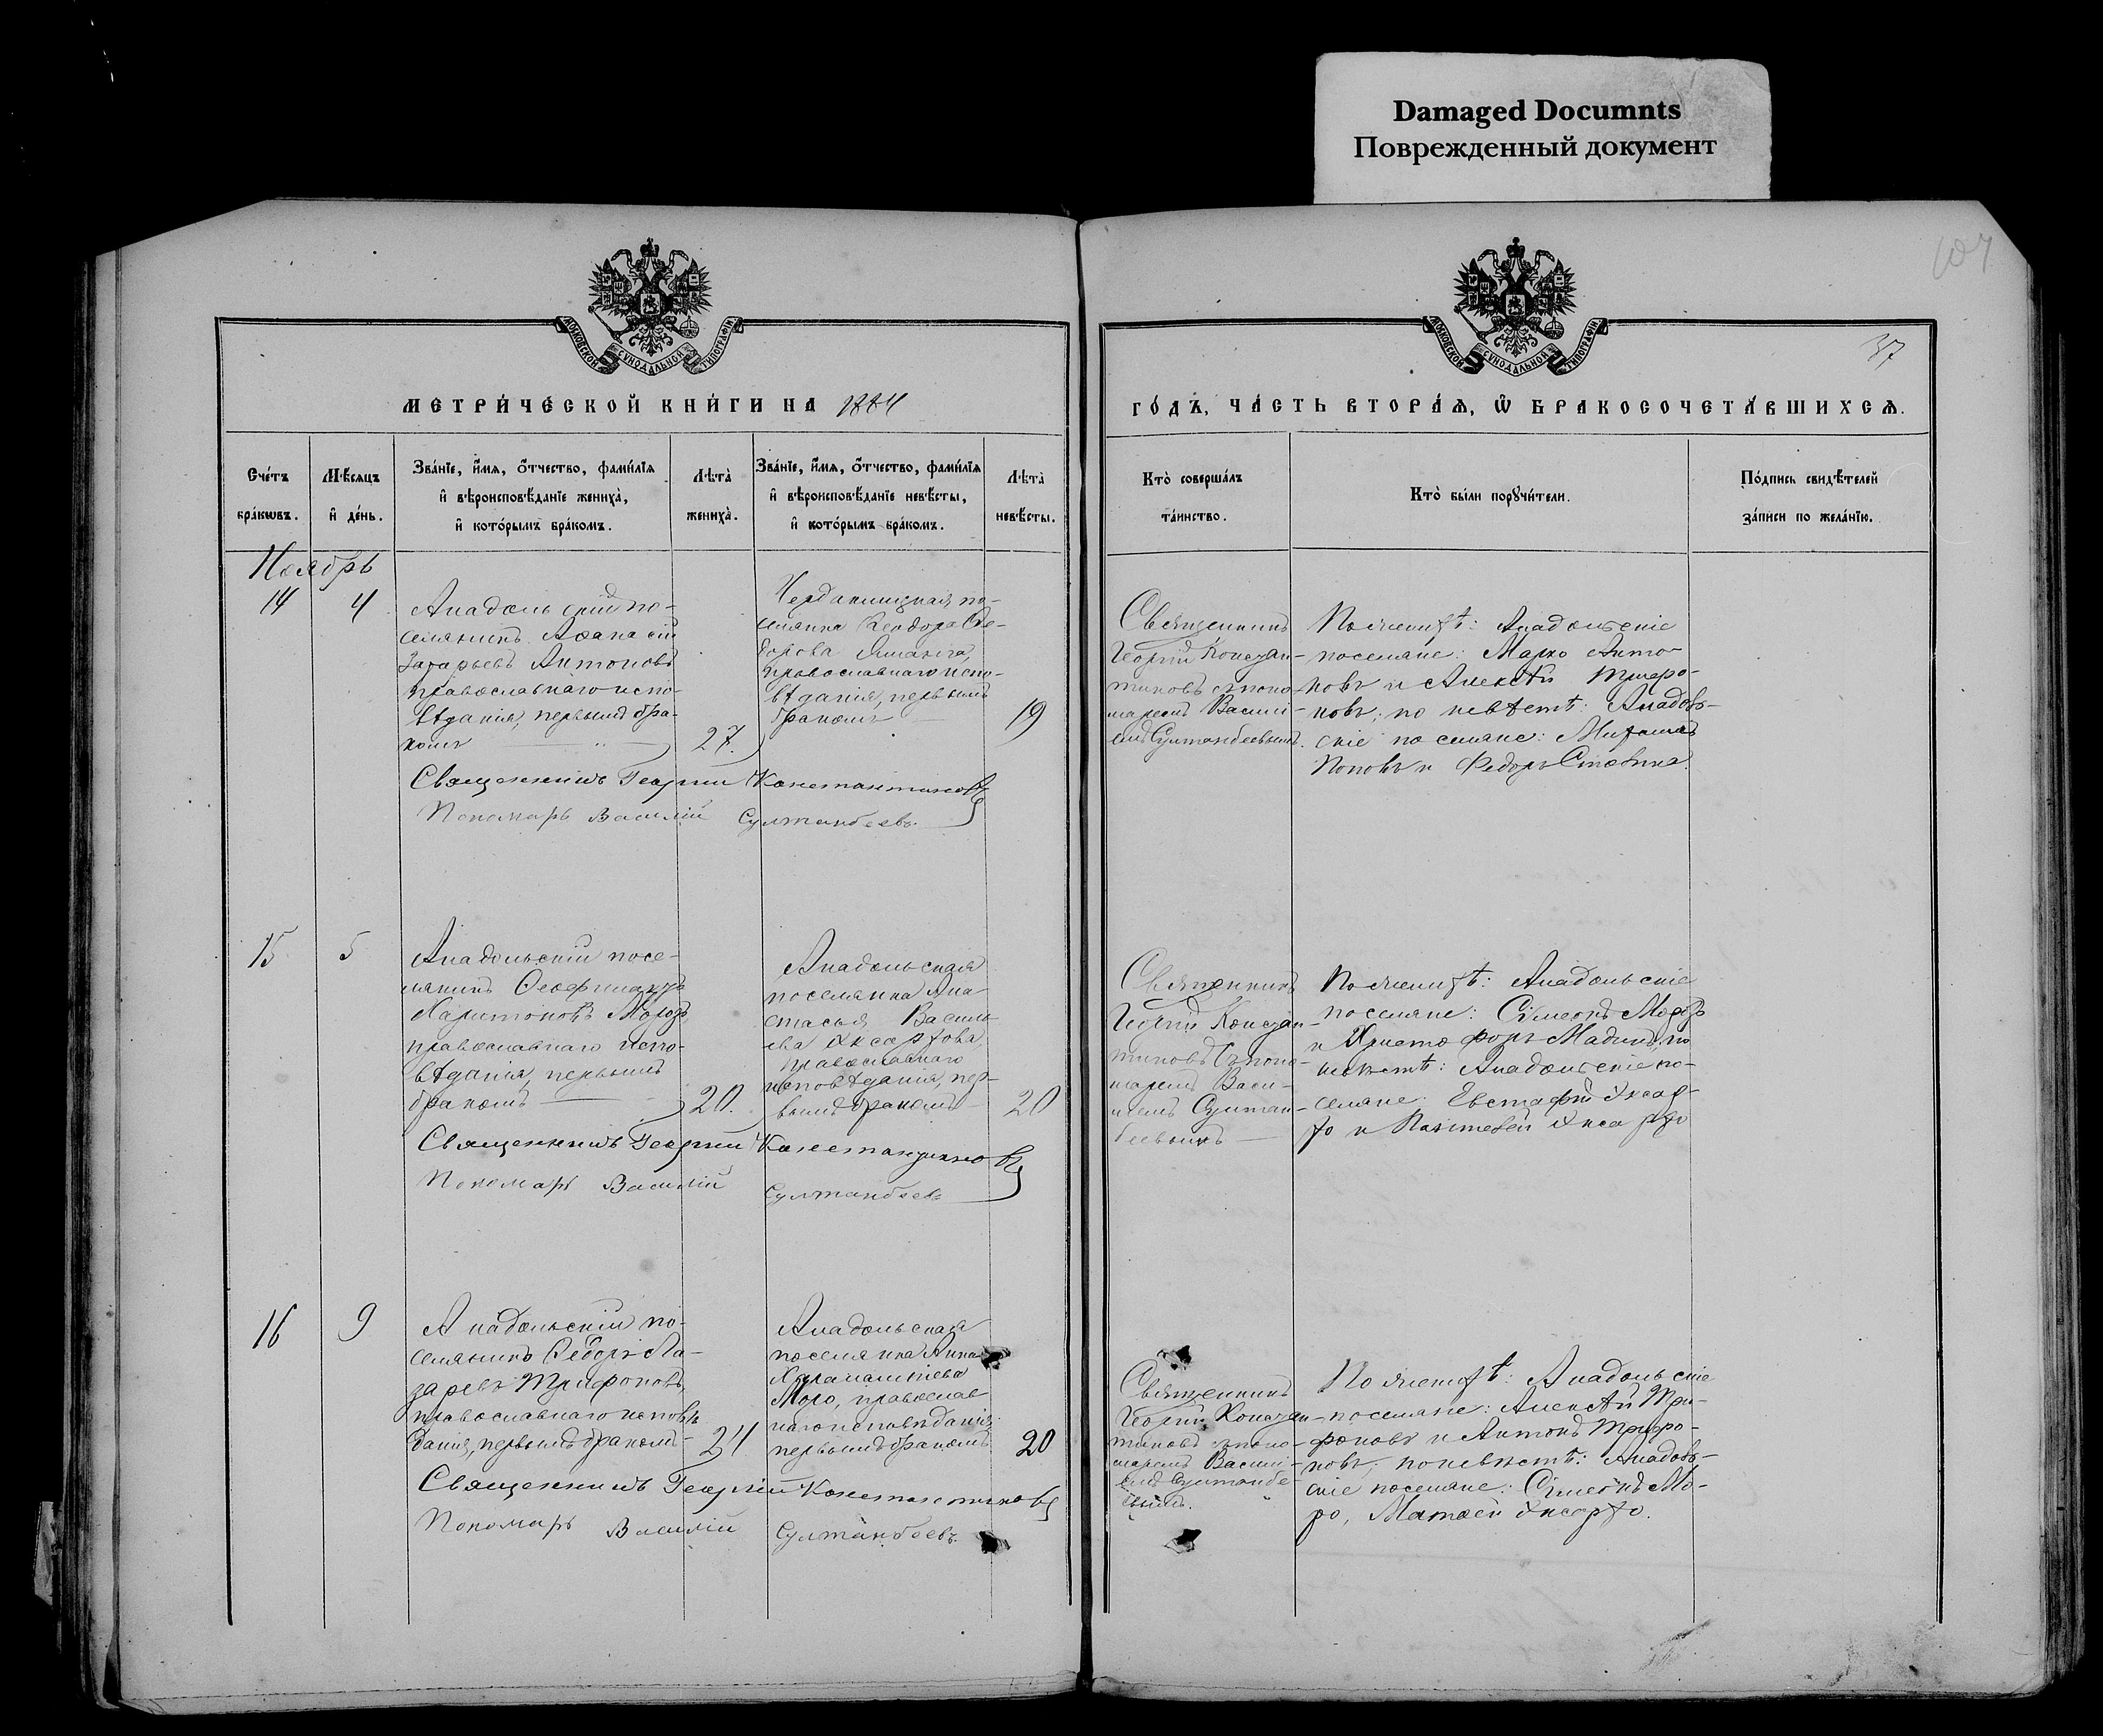 Damaged Documnts
Поврежденный документ
37
МОСКОВСКОЙ СѴНОДАЛЬНОЙ ТИПОГРАФІИ
МОСКОВСКОЙ СѴНОДАЛЬНОЙ ТИПОГРАФІИ
МЕТРИ́ЧЕСКОЙ КНИ́ГИ НА 1884
ГО́ДЪ, ЧА́СТЬ ВТОРА́Я, Ѡ҆ БРАКОСОЧЕТА́ВШИХСЯ.
Сче́тъ
бра́кѡвъ.
Мѣ́сяцъ
и҆ де́нь.
Зва́нїе, и҆́мя, ѻ҆́тчество, фами́лїя
и҆ вѣроисповѣ́данїе жениха̀,
и҆ кото́рымъ бра́комъ.
Лѣта̀
жениха̀.
Зва́нїе, и҆́мя, ѻ҆́тчество, фами́лїя
и҆ вѣроисповѣ́данїе невѣ́сты,
и҆ кото́рымъ бра́комъ.
Лѣта̀
невѣ́сты.
Кто̀ соверша́лъ
та́инство.
Кто̀ бы́ли порꙋчи́тели.
По́дпись свидѣ́телей
за́писи по жела́нїю.
Ноябрь
14
4
Анадольскій по-
селянинъ Аѳанасій
Захарьевъ Антоновъ
православнаго испо-
вѣданія, первымъ бра-
комъ
27.
православнаго испо-
вѣданія, первымъ
бракомъ
19
Священникъ
Георгій Констан-
тиновъ съ поно-
маремъ Васили-
емъ Султанбеевымъ.
По женихѣ: Анадольскіе
поселяне: Марко Анто-
новъ и Алексѣй Трифо-
новъ; по невѣстѣ: Анадоль-
скіе поселяне:
Поповъ и Федоръ
Священникъ Георгій Константиновъ
Пономарь Василій Султанбеевъ
15
5
Анадольскій посе-
лянинъ
Харитоновъ
православнаго испо-
вѣданія, первымъ
бракомъ
20.
Анадольская
поселянка Ана-
стасья Василь-
ева
православнаго
исповѣданія, пер-
вымъ бракомъ
20
Священникъ
Георгій Констан-
тиновъ съ поно-
маремъ Васи-
ліемъ Султан-
беевымъ
По женихѣ: Анадольскіе
поселяне: Симеонъ
и Христофоръ по
невѣстѣ: Анадольскіе по-
селяне: Евстафій
Священникъ Георгій Константиновъ
Пономарь Василій Султанбеевъ
16
9
Анадольскій по-
селянинъ Ѳедоръ Ла-
заревъ Трифоновъ,
православнаго исповѣ-
данія, первымъ бракомъ
24
Анадольская
поселянка Анна
Харалампіева
Моро, православ-
наго исповѣданія
первымъ бракомъ
20
Священникъ
Георгій Констан-
тиновъ съ поно-
маремъ Васили-
емъ Султанбе-
евымъ.
По женихѣ: Анадольскіе
поселяне: Алексѣй Три-
фоновъ и Антонъ Трифо-
новъ; по невѣстѣ: Анадоль-
скіе поселяне: Симеонъ Мо-
ро, Матѳей
Священникъ Георгій Константиновъ
Пономарь Василій Султанбеевъ.